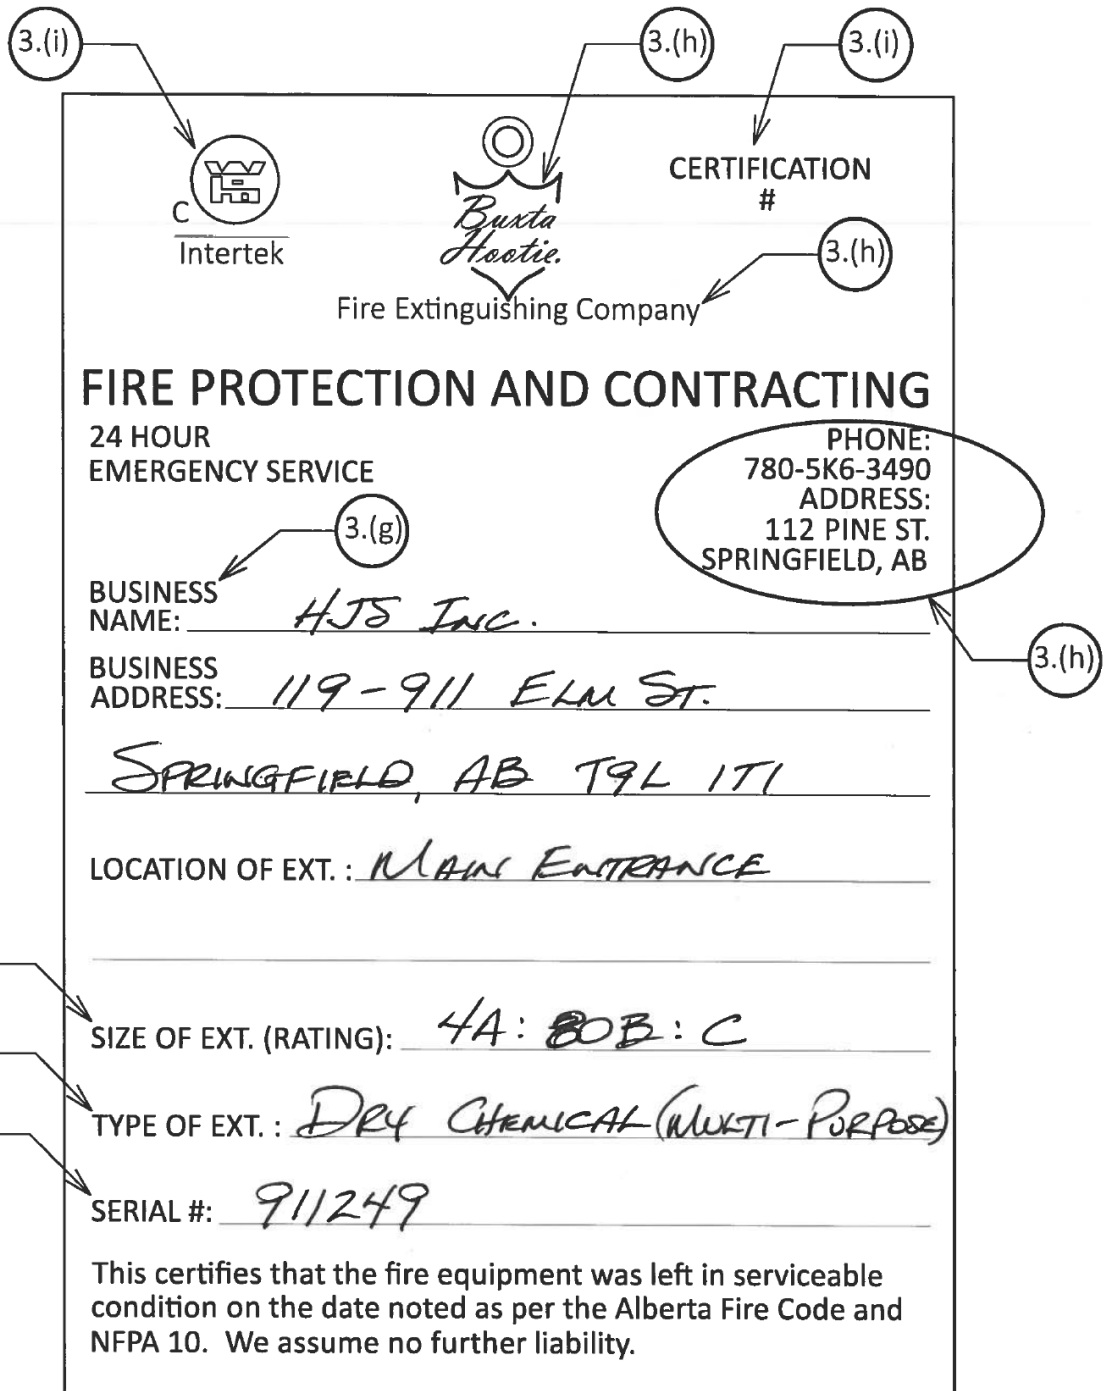 3.(i)
3.(h)
3.(i)
C
Intertek
Buxta
Hootie.
CERTIFICATION
#
3.(h)
Fire Extinguishing Company
FIRE PROTECTION AND CONTRACTING
24 HOUR
EMERGENCY SERVICE
PHONE:
780-5K6-3490
ADDRESS:
112 PINE ST.
SPRINGFIELD, AB
3.(g)
BUSINESS
NAME: HJS INC.
3.(h)
BUSINESS
ADDRESS: 119-911 ELM ST.
SPRINGFIELD, AB T9L 1T1
LOCATION OF EXT. : MAIN ENTRANCE
SIZE OF EXT. (RATING): 4A: 80B: C
TYPE OF EXT. : DRY CHEMICAL (MULTI-PURPOSE)
SERIAL #: 911249
This certifies that the fire equipment was left in serviceable
condition on the date noted as per the Alberta Fire Code and
NFPA 10. We assume no further liability.